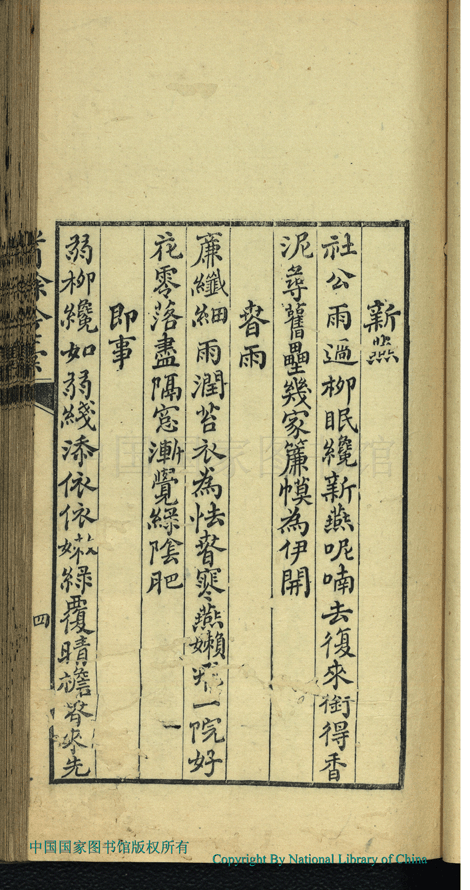 新燕
社公雨過柳眠纔新燕呢喃去復來銜得香
泥尋舊壘幾家簾幙為伊開
春雨
廉纖細雨潤苔衣為怯春寒燕嬾飛一院好
花零落盡隔窓漸覺綠陰肥
即事
弱柳纔如弱綫添依依嫩綠覆晴檐春來先
四
中国国家图书馆
中国国家图书馆版权所有
Copyright By National Library of China